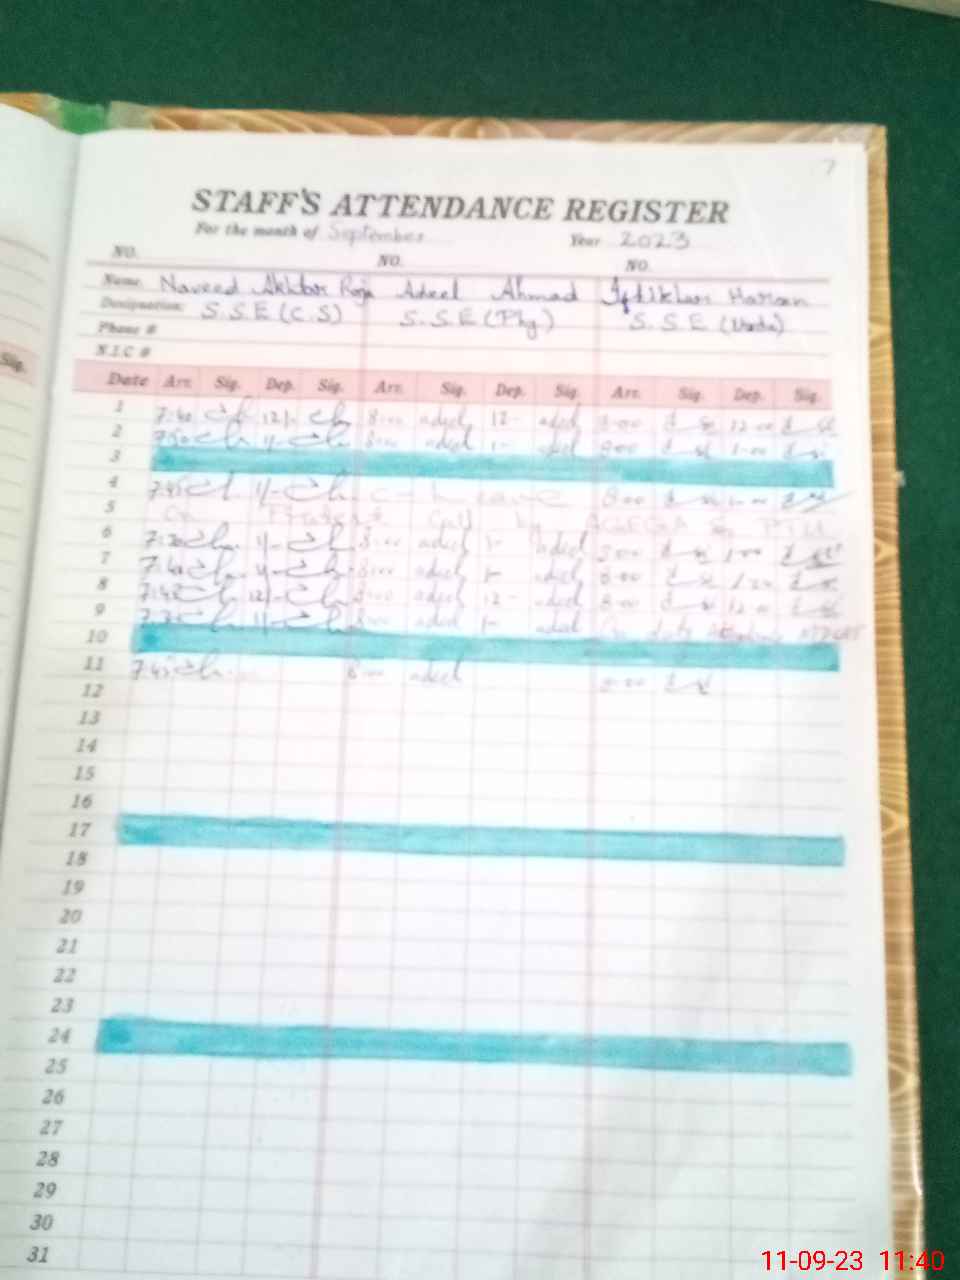 7
STAFF'S ATTENDANCE REGISTER
For the month of September Year 2023
NO. NO. NO.
Name Naveed Akhtar Raja Adeel Ahmad Iftikhar Hassan
Designation: S.S.E (C.S) S.S.E (Phy) S.S.E (Urdu)
Phone #
N.I.C #
Sig.
Date Arr. Sig. Dep. Sig. Arr. Sig. Dep. Sig. Arr. Sig. Dep. Sig.
1 7:40 12/- 8:00 adeel 12- adeel 8:00 12:00
2 7:50 1/- 8:00 adeel 1- adeel 8:00 1:00
3
4 7:45 1/- C-Leave 8:00
5 On Protest Call by AGEGA & PTU
6 1/- 8:00 adeel 1- adeel 8:00 1:00
7 1/- 8:00 adeel 1- adeel 8:00
8 12/- 8:00 adeel 12- adeel 8:00 12:00
9 1/- 8:00 adeel 1- adeel On duty MDCAT
10
11 7:45 8:00 adeel 8:00
12
13
14
15
16
17
18
19
20
21
22
23
24
25
26
27
28
29
30
31
11-09-23 11:40